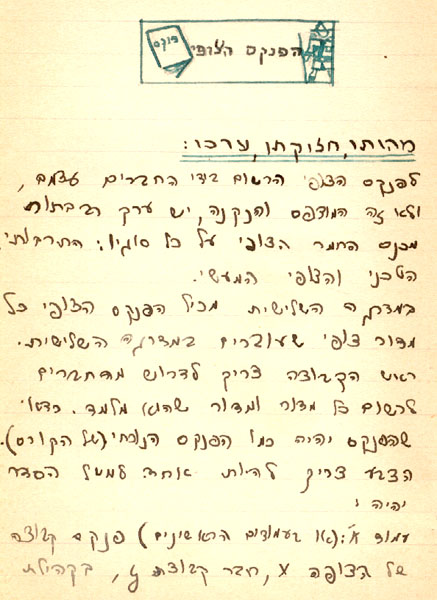 פנקס
הפנקס הצופי
מהותו, חזוקתו, ערכו:
לפנקס הצופי הרשום בידי החברים עצמם,
ולא זה המודפס והנקנה, יש ערק רב בתור
מכנס החמר הצופי על כל סוגיו: התרבותי,
הטכני והצופי המעשי.
במדרגה השלישית מכיל הפנקס הצופי כל
מדור צופי שעוברים במדרגה השלישית.
ראש הקבוצה צריך לדרוש מהחברים
לרשום כל מדור ומדור שהוא מלמד. כדאי
שהפנקס יהיה כמו הפנקס הנוכחי (של הקורס).
הצבע צריך להיות אחד. למשל הסדר
יהיה:
עמוד א': (או בעמודים הראשינים) פנקס קבוצה
של הצופה X, חבר קבוצת y, בקהילת